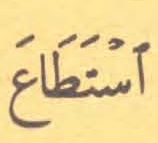 ٱسْتَطَاعَ